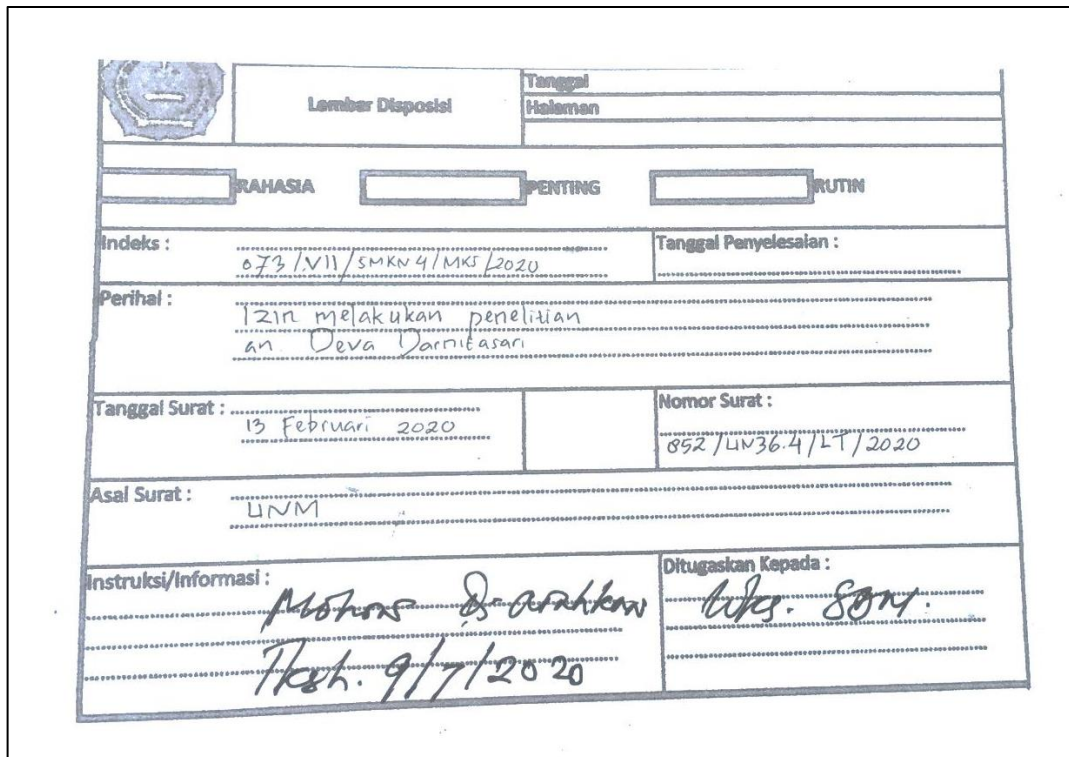 Lembar Disposisi
Tanggal
Halaman
RAHASIA
PENTING
RUTIN
Indeks :
073/VII/SMKN4/MKS/2020
Tanggal Penyelesaian :
Perihal :
Izin melakukan penelitian
an. Deva Darnitasari
Tanggal Surat :
13 Februari 2020
Nomor Surat :
852/UN36.4/LT/2020
Asal Surat :
UNM
Instruksi/Informasi :
Mohon Di-arahkan
9/7/2020
Ditugaskan Kepada :